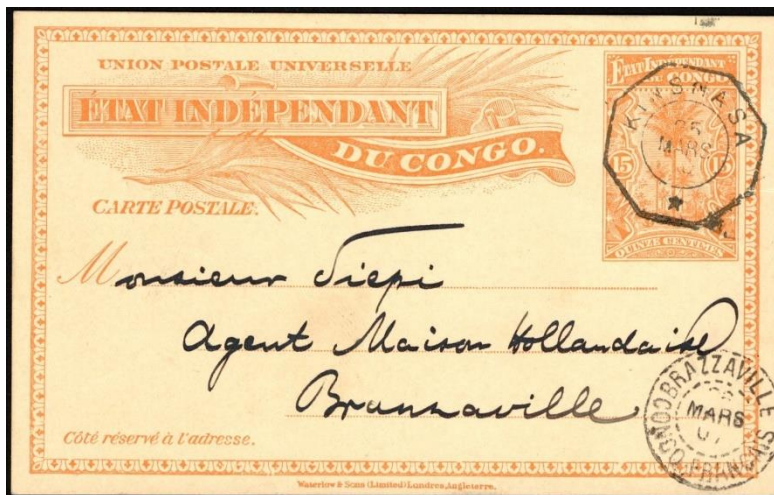 UNION POSTALE UNIVERSELLE
ÉTAT INDÉPENDANT
DU CONGO.
CARTE POSTALE.
ÉTAT INDÉPENDANT
DU CONGO
15 15
QUINZE CENTIMES
KINSHASA
26
MARS
Monsieur Tiepi
Agent Maison Hollandaise
Branzaville
BRAZZAVILLE
MARS
07
CONGO FRANCAIS
Côté réservé à l'adresse.
Waterlow & Sons (Limited) Londres, Angleterre.